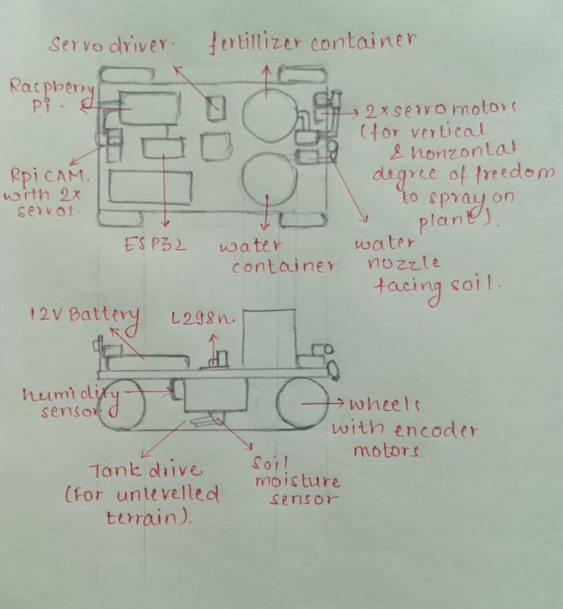 Servo driver.
fertillizer container
Raspberry
Pi.
2x servo motors
(for vertical
& horizontal
degree of freedom
to spray on
plant).
Rpi CAM.
with 2x
servos.
ESP32
water
container.
water
nozzle
facing soil.
12V Battery
L298n.
humidity
sensor
wheels
with encoder
motors
Tank drive
(for unlevelled
terrain).
Soil
moisture
sensor